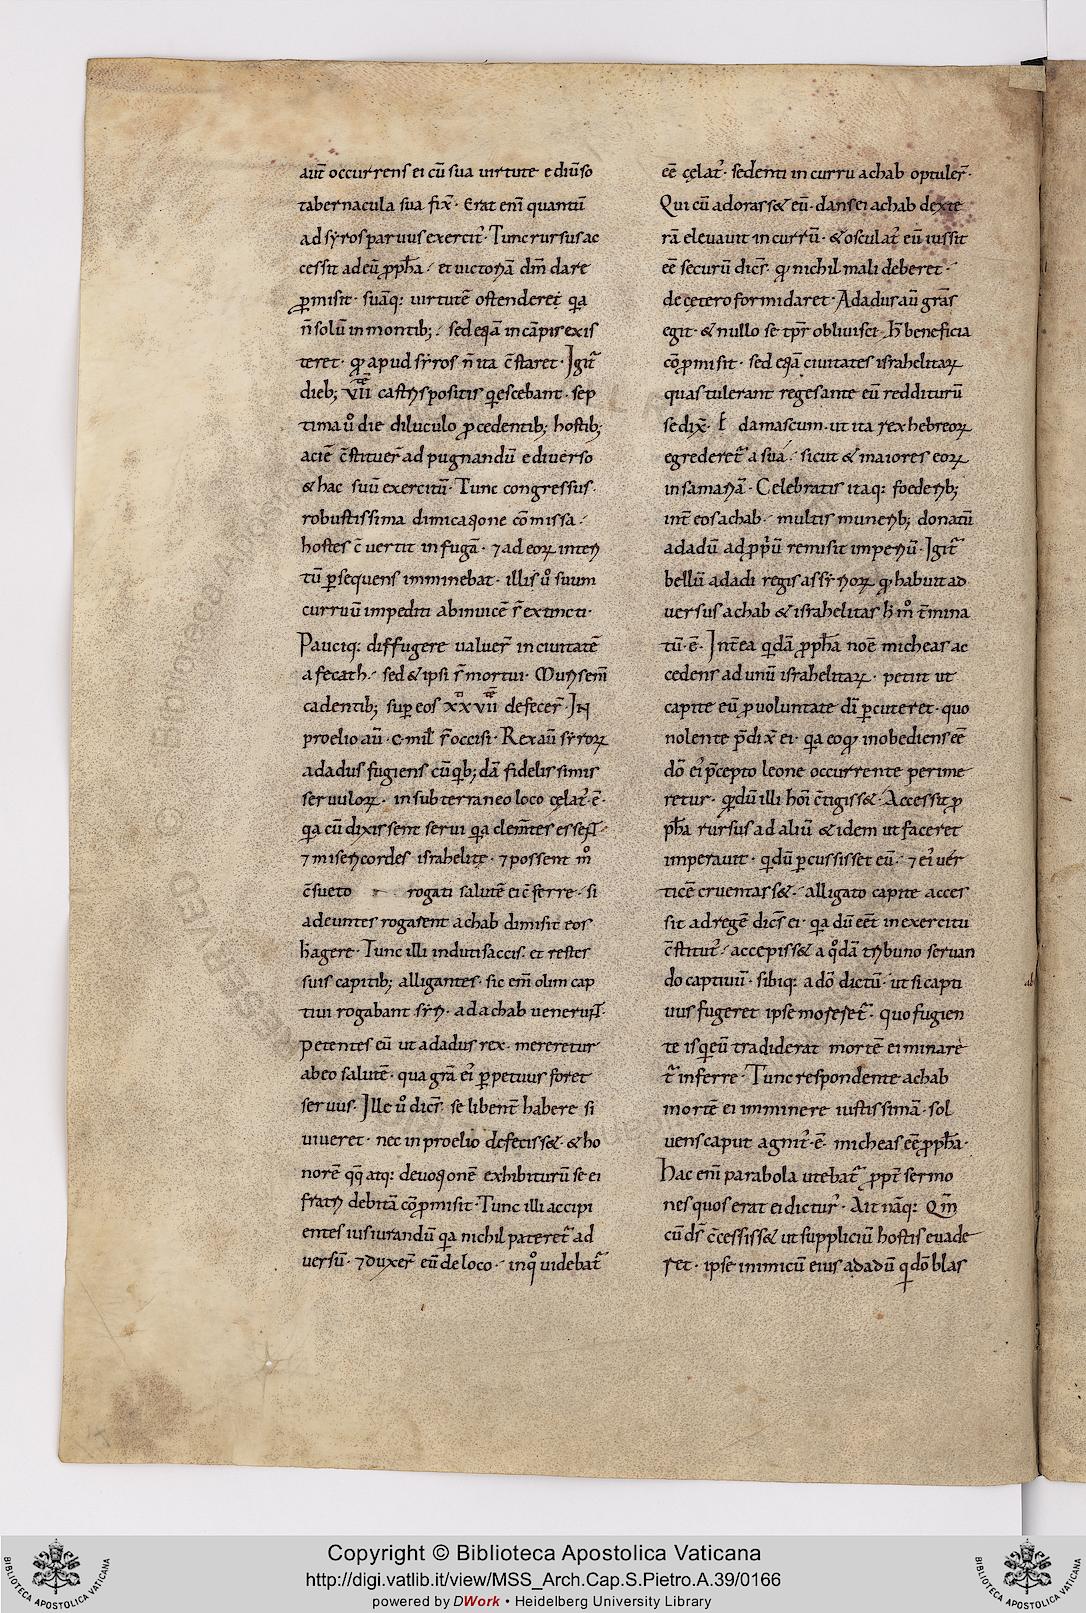 aut̄ occurrens ei cū sua uirtute e diūso
tabernacula sua fix̄· Erat enī quantū
ad sẏros paruus exercit᷒· Tunc rursus ac
cessit ad eū ꝓph̄a· et uictoriā dn̄m dare
ꝓmisit· suāq: uirtutē ostenderet qa
n̄ solū in montib; sed eqā in cāpis exis
teret· qđ apud sẏros n̄ ita c̄staret· Igit᷑
dieb; VII castris positis qescebant· sep
tima ů die diluculo ꝓcedentib; hostib;
aciē c̄stituer̄ ad pugnandū e diuerso
& hac suū exercitū· Tunc congressus·
robustissima dimicatione cōmissa·
hostes c̄uertit in fugā· ⁊ ad eoꝝ interi
tū ꝑsequens imminebat· illis ů suum
curruū impediti abinuicē s̄ extincti·
Pauciq: diffugere ualuer̄ in ciuitatē
afecath· sed & ipsi s̄ mortui· Muris em̄
cadentib; suꝑ eos xxvii defecer̄· IN
proelio au̅· c· mil̄ s̄ occisi· Rex au̅ sẏroꝝ
adadus fugiens cū qb;dā fidelissimis
seruuloꝝ· in subterraneo loco cęlat᷒· ē·
qa cū dixissent serui qa clem̄tes essent·
⁊ misericordes israhelitę· ⁊ possent m̊
c̄sueto rogati salutē ei c̄ferre· si
adeuntes rogasent achab dimisit eos
hagere· Tunc illi induti saccis· et restes
suis capitib; alligantes· sic em̄ olim cap
tiui rogabant sẏri· ad achab uenerunt·
petentes eū ut adadus rex· mereretur
ab eo salutē· qua grā ei᷒ ꝑpetuus foret
seruus· Ille ů dic̄s· se libent̄ habere si
uiueret· nec in proelio defeciss&· & ho
norē qq̄ atq: deuotionē exhibiturū se ei
fratri debitā cōꝓmisit· Tunc illi accipi
entes iusiurandū qa nichil pateret᷑ ad
uersū· ⁊ duxer̄ eū de loco· in q̊ uidebat᷑
eē cęlat᷒· sedenti in curru achab optuler̄·
Qui cū adorass& eū· dans ei achab dexte
rā eleuauit in currū· & osculat᷒ eū iussit
eē securū dic̄s· qđ nichil mali deberet·
de cętero formidaret· Adadus au̅ grās
egit· & nullo se tp̄r obliuisci h̄ beneficia
cōꝓmisit· sed eqā ciuitates israhelitaꝝ
quas tulerant reges ante eū redditurū
se dix̄· damascum· ut ita rex hebreoꝝ
egrederet᷑ a sua· sicut & maiores eoꝝ
in samariā· Celebratis itaq: foederib;
int̄ eos achab· multis munerib; donatū
adadū ad ꝓp̄ū remisit imperiū· Igit᷑
bellū adadi regis assẏrioꝝ qđ habuit ad
uersus achab & israhelitas h̄ m̊ t̄mina
tū· ē· Int̄ea qdā ꝓph̄a noē micheas ac
cedens ad unū israhelitaꝝ· petiit ut
capite eū ꝓ uoluntate dī ꝑcuteret· quo
nolente p̄dix̄ ei· qa eo qđ inobediens eē
dō ei᷒ p̄cepto leone occurrente perime
retur· qđ dū illi hoī c̄tigiss&· Accessit ꝓ
ph̄a rursus ad aliū & idem ut faceret
imperauit· qđ dū ꝑcussisset eū· ⁊ ei᷒ uer
ticē cruentass&· alligato capite acces
sit ad regē dic̄s ei· qa dū eēt in exercitu
c̄stitut᷒· accepiss& a q̊dā tribuno seruan
do captiuū· sibiq: a dō dictū· ut si capti
uus fugeret ipse moreret᷑· quo fugien
te is qi eū tradiderat mortē ei minare
t᷑ inferre· Tunc respondente achab
mortē ei imminere iustissimā· sol
uens caput agnit᷒· ē· micheas eē ꝓph̄a·
Hac em̄ parabola utebat᷑ ꝓpt̄ sermo
nes quos erat ei dictur᷒· Ait nāq: Qm̄
cū dš c̄cessiss& ut suppliciū hostis euade
ret· ipse inimicū eius adadū qi dō blas
Copyright © Biblioteca Apostolica Vaticana
http://digi.vatlib.it/view/MSS_Arch.Cap.S.Pietro.A.39/0166
powered by DWork • Heidelberg University Library
BIBLIOTECA APOSTOLICA VATICANA
BIBLIOTECA APOSTOLICA VATICANA